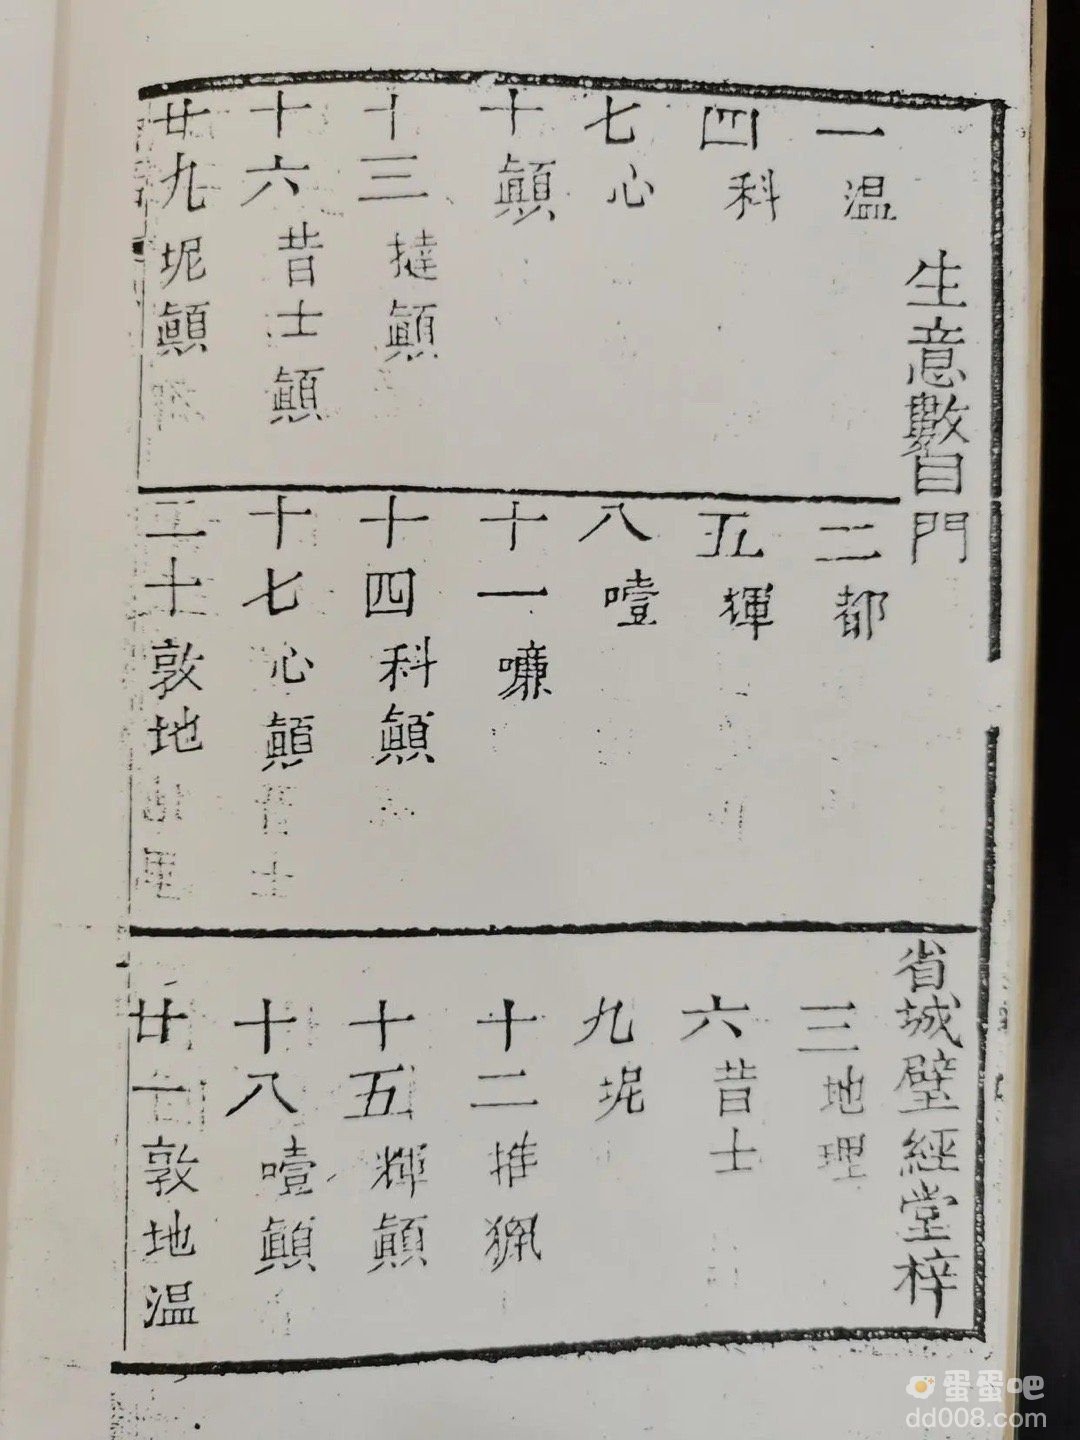 生意數目門
省城璧經堂梓
一温
二都
三地理
四科
五揮
六昔士
七心
八噎
九坭
十顛
十一嚷
十二推猟
十三撻顛
十四科顛
十五輝顛
十六昔士顛
十七心顛
十八噎顛
廿九坭顛
二十敦地
廿一敦地温
蛋蛋吧
dd008.com